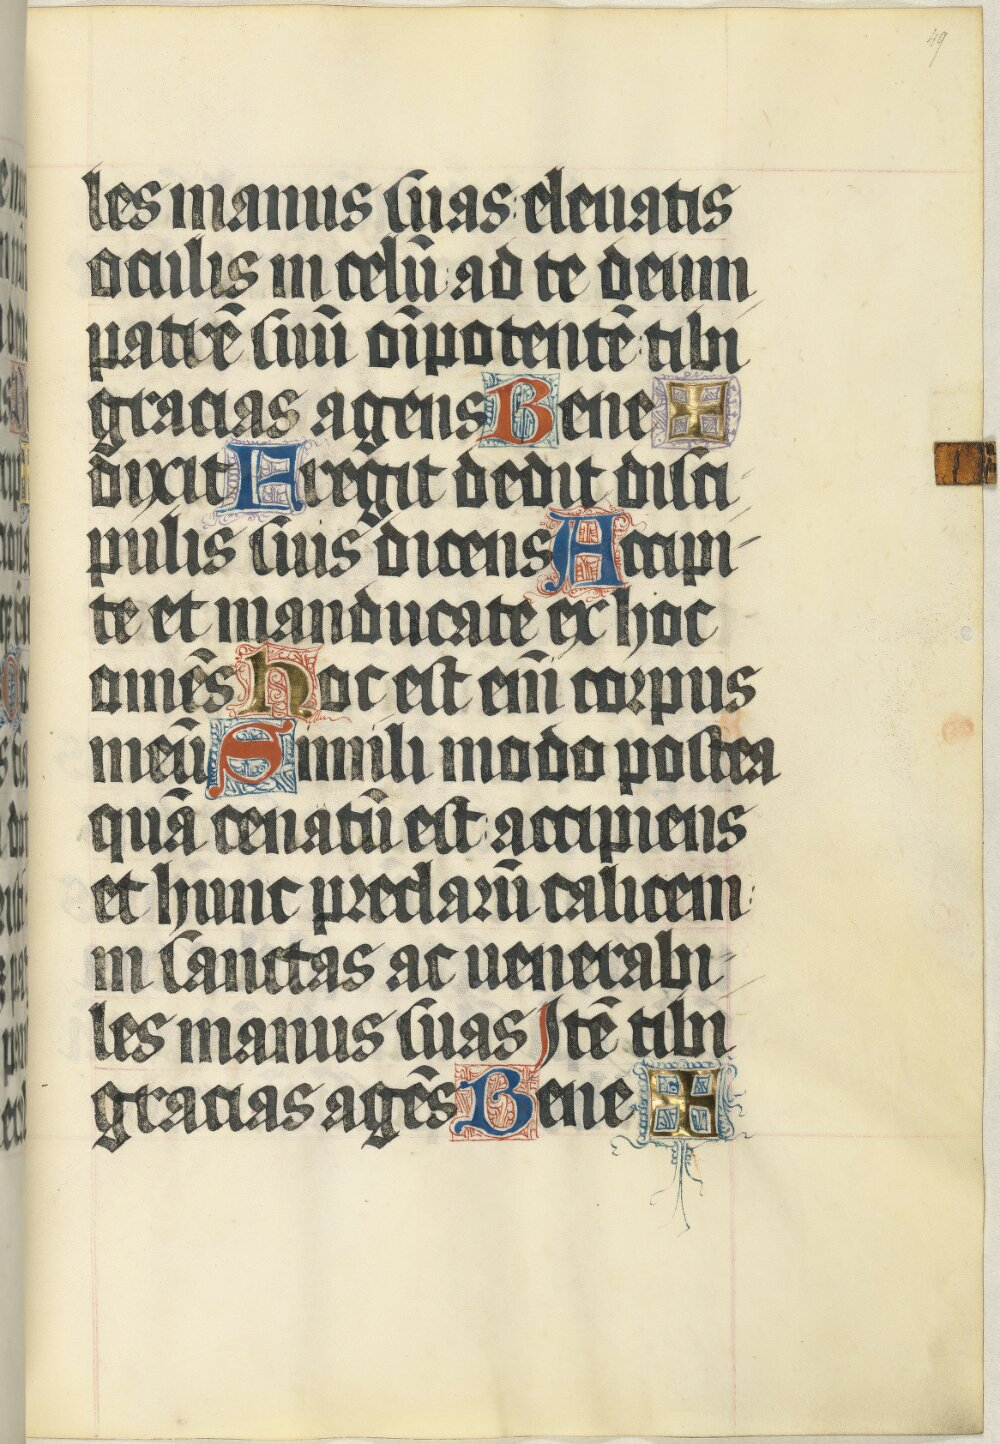 49
les manus suas: eleuatis
oculis in celū: ad te deum
patrē suū oīpotentē: tibi
gracias agens Bene ✠
dixit Fregit dedit disci-
pulis suis dicens Accipi-
te et manducate ex hoc
omēs hoc est em̄ corpus
meū Simili modo postea
quā cenatū est: accipiens
et hunc preclarū calicem
in sanctas ac uenerabi-
les manus suas Jtē tibi
gracias agēs Bene ✠